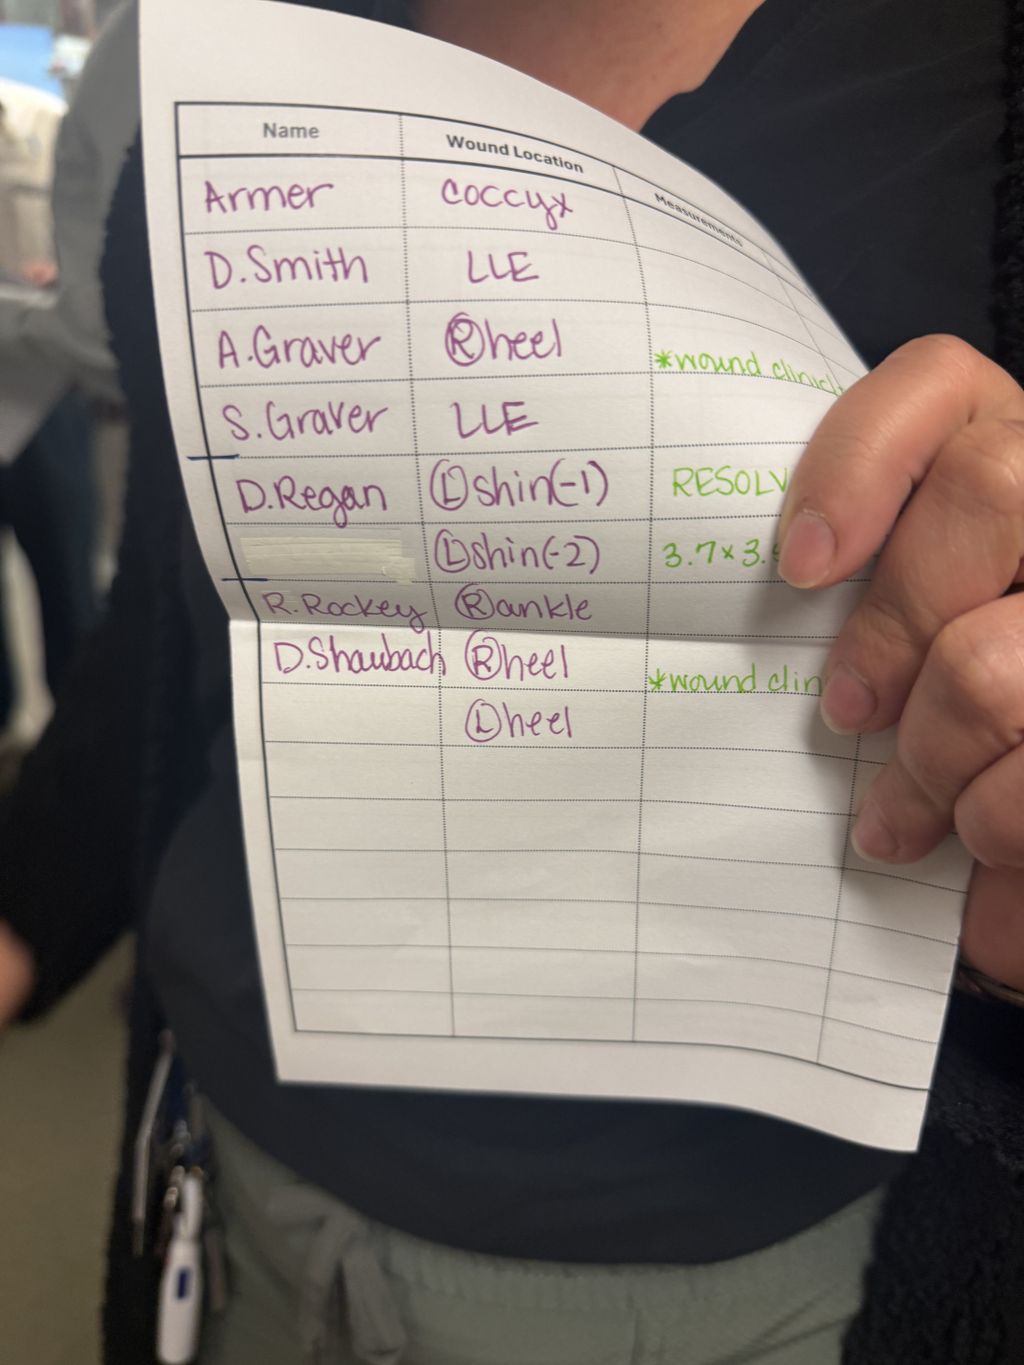 Name Wound Location Measurements
Armer coccyx
D. Smith LLE
A. Graver Ⓡ heel *wound clinic
S. Graver LLE
D. Regan Ⓛ shin (-1) RESOLV
Ⓛ shin (-2) 3.7 x 3.
R. Rockey Ⓡ ankle
D. Shaubach Ⓡ heel *wound clin
Ⓛ heel